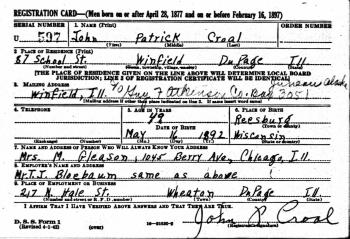 REGISTRATION CARD—(Men born on or after April 28, 1877 and on or before February 16, 1897)
SERIAL NUMBER 1. NAME (Print) ORDER NUMBER
U 597 John Patrick Croal
(First) (Middle) (Last)
2. PLACE OF RESIDENCE (Print)
87 School St. Winfield DuPage Ill.
(Number and street) (Town, township, village, or city) (County) (State)
[THE PLACE OF RESIDENCE GIVEN ON THE LINE ABOVE WILL DETERMINE LOCAL BOARD
JURISDICTION; LINE 2 OF REGISTRATION CERTIFICATE WILL BE IDENTICAL]
3. MAILING ADDRESS
Winfield, Ill. % Guy F Atkinson Co. Box 2051
[Mailing address if other than place indicated on line 2. If same insert word same]
4. TELEPHONE 5. AGE IN YEARS 6. PLACE OF BIRTH
49 Reesburg
DATE OF BIRTH (Town or county)
May 16 1892 Wisconsin
(Exchange) (Number) (Mo.) (Day) (Yr.) (State or country)
7. NAME AND ADDRESS OF PERSON WHO WILL ALWAYS KNOW YOUR ADDRESS
Mrs. M. Gleason, 1045 Berry Ave, Chicago, Ill.
8. EMPLOYER'S NAME AND ADDRESS
Mr. T.J. Bloebaum same as above
9. PLACE OF EMPLOYMENT OR BUSINESS
217 N. Hale St. Wheaton DuPage Ill.
(Number and street or R. F. D. number) (Town) (County) (State)
I AFFIRM THAT I HAVE VERIFIED ABOVE ANSWERS AND THAT THEY ARE TRUE.
D. S. S. Form 1
(Revised 4-1-42) (over)
John P. Croal
(Registrant's signature)